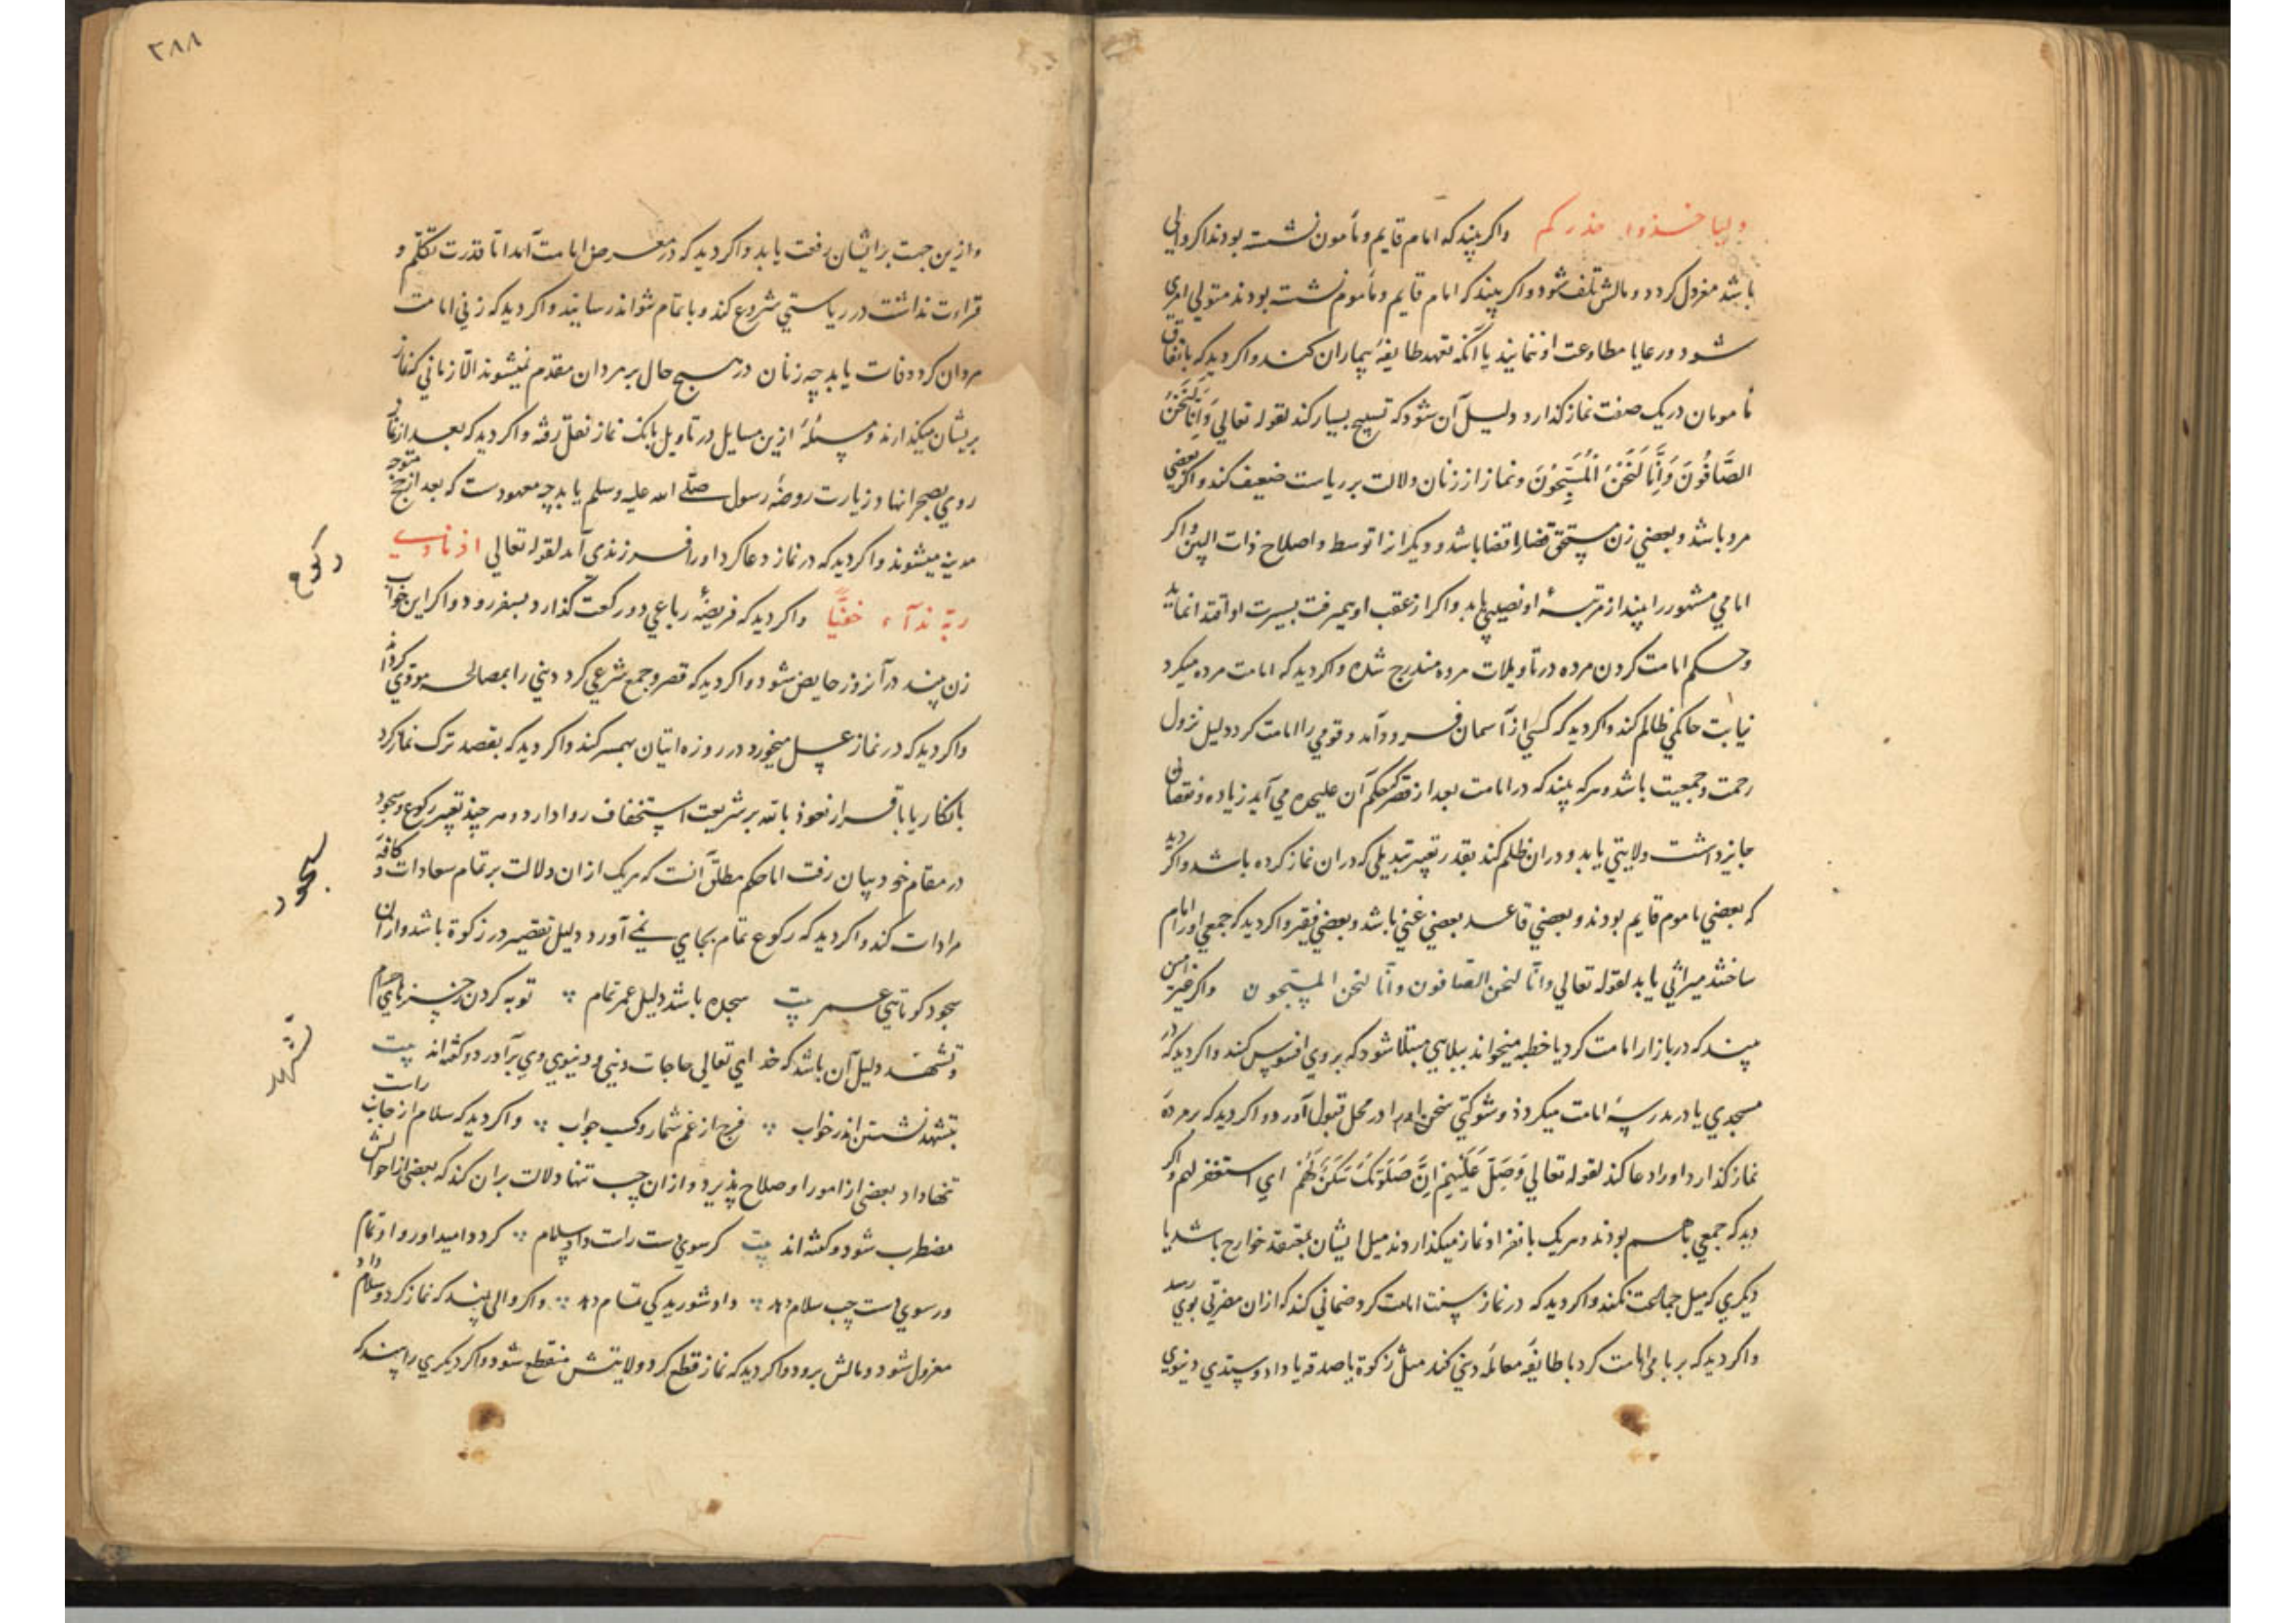 ولیاخذوا حذرکم واکر بیند که امام قایم و مأمون نشسته بودند اکر والی
باشد معزول کردد و مالش تلف شود و اکر بیند که امام قایم و مأموم نشسته بودند متولی امری
شود و رعایا مطاوعت او ننمایند یا آنکه تعهد طایفهٔ بیماران کند و اکر دید که باتفاق
مأمومان در یک صف نماز کذارد دلیل آن شود که تسبیح بسیار کند لقوله تعالی وَاِنَّا لَنَحْنُ
الصَّافُّونَ وَاِنَّا لَنَحْنُ الْمُسَبِّحُونَ و نماز از زنان دلالت بر ریاست ضعیف کند و اکر بعضی
مرد باشد و بعضی زن مستحق قضا را قضا باشد و دیکر انرا توسط و اصلاح ذات البین و اکر
امامی مشهور را بیند از مرتبهٔ او نصیبی یابد و اکر از عقب او میرفت بسیرت او اقتدا نماید
و حکم امامت کردن مرده در تأویلات مرده مندرج شده و اکر دید که امامت مرده میکرد
نیابت حاکمی ظالم کند و اکر دید که کسی از آسمان فرود آمد و قومی را امامت کرد دلیل نزول
رحمت و جمعیت باشد و هر که بیند که در امامت بعد از آن علیحده می آید زیاده و نقصان
جایز داشت ولایتی یابد و در ان ظلم کند بقدر تغییر تبدیلی که در ان نماز کرده باشد و اکر دید
که بعضی ماموم قایم بودند و بعضی قاعد بعضی غنی باشد و بعضی فقیر و اکر دید که جمعی او را امام
ساختند میراثی یابد لقوله تعالی وانّا لنحن الصّافون وانّا لنحن المسبّحون واکر
بیند که در بازار امامت کرد یا خطبه میخواند ببلایی مبتلا شود که بر وی افسوس کند و اکر دید که در
مسجدی یا در مدرسهٔ امامت میکرد و شوکتی سخن او را در محل قبول آورد و اکر دید که بر مرده
نماز کذارد او را دعا کند لقوله تعالی وَصَلِّ عَلَيْهِمْ اِنَّ صَلَوٰتَكَ سَكَنٌ لَهُمْ ای استغفر لهم و اکر
دید که جمعی با هم بودند و هر یک بانفراد نماز میکذاردند میل ایشان بمعتقد خوارج باشد یا
دیکری که میل جماعت نکند و اکر دید که در نماز سنت امامت کرد ضمانی کند که از ان مضرتی بوی رسد
و اکر دید که بر بامی امامت کرد با طایفهٔ معاملهٔ دینی کند مثل زکوة یا صدقه یا داد و ستدی دنیوی
٢٨٨
و ازین جهت بر ایشان رفعت یابد و اکر دید که در معرض امامت آمد اما قدرت تکلّم و
قراءت نداشت در ریاستی شروع کند و باتمام نتواند رسانید و اکر دید که زنی امامت
مردان کرد وفات یابد چه زنان در هیچ حال بر مردان مقدم نمیشوند الّا زمانی که نماز
بریشان میکذارند و مسئلهٔ ازین مسایل در تاویل بانک نماز نقل رفته و اکر دید که بعد از نماز
روی بصحرا نهاد زیارت روضهٔ رسول صلی الله علیه وسلم یابد چه معهودست که بعد از حج متوجه
مدینه میشوند و اکر دید که در نماز دعا کرد او را فرزندی آید لقوله تعالی اذ نادی
ربّه ندآء خفیًّا واکر دید که فریضهٔ رباعی دو رکعت کذارد بسفر رود و اکر این خواب
زن بیند در آنروز حایض شود و اکر دید که قصر و جمع شرعی کرد دینی را بمصالحه مودّی کرداند
و اکر دید که در نماز عسل میخورد در روزه اتیان بهمسر کند و اکر دید که بقصد ترک نماز کرد
بانکار یا باقرار نعوذ بالله بر شریعت استخفاف روا دارد و هر چند تعبیر رکوع و سجود
در مقام خود بیان رفت اما حکم مطلق آنست که هر یک از ان دلالت بر تمام سعادات و کافهٔ
مرادات کند و اکر دید که رکوع تمام بجای نمی آورد دلیل تقصیر در زکوة باشد و از ان
سجود کوتاهی عمر بیت سجده باشد دلیل عمر تمام توبه کردن ز چیزهای حرام
و تشهد دلیل آن باشد که خدای تعالی حاجات دینی و دنیوی وی برآورد و کفته اند بیت
بتشهد نشستن اندر خواب فرج از غم شمار و کسب جواب و اکر دید که سلام از جانب راست
تنها داد بعضی از امور او صلاح پذیرد و از ان چپ تنها دلالت بران کند که بعضی از احوالش
مضطرب شود و کفته اند بیت کر سوی دست راست داد سلام کردد امید او روا و تمام
ور سوی دست چپ سلام دهد و اکر والی بیند که نماز کرد و سلام داد
معزول شود و مالش برود و اکر دید که نماز قطع کرد ولایتش منقطع شود و اکر دیکری را بیند که
رکوع
سجود
تشهد